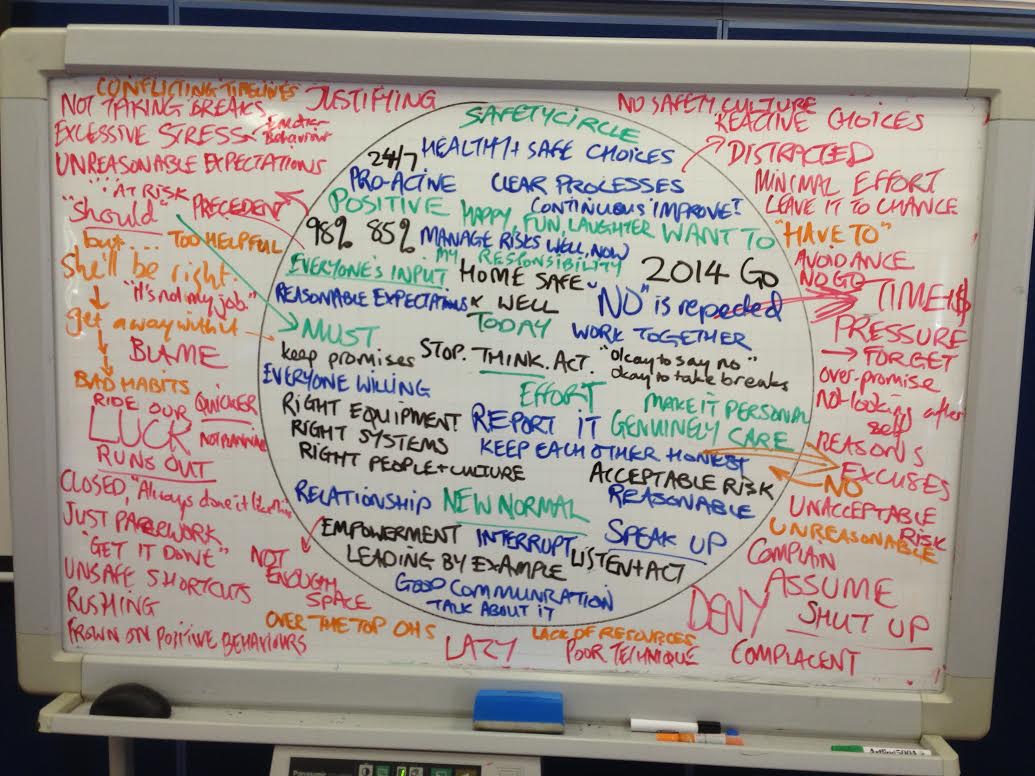 CONFLICTING TIMELINES
NOT TAKING BREAKS
JUSTIFYING
EXCESSIVE STRESS
Behaviour
UNREASONABLE EXPECTATIONS
AT RISK
"Should"
PRECEDENT
but... TOO HELPFUL
She'll be right.
"it's not my job"
get away with it
BLAME
BAD HABITS
RIDE OUR
LUCK
RUNS OUT
QUICKER
NOT PLANNING
CLOSED, "Always done it like this"
JUST PAPERWORK
"GET IT DONE"
NOT
ENOUGH
SPACE
UNSAFE SHORTCUTS
RUSHING
FROWN ON POSITIVE BEHAVIOURS
OVER THE TOP OHS
LAZY
LACK OF RESOURCES
POOR TECHNIQUE
SAFETY CIRCLE
24/7
HEALTHY + SAFE CHOICES
PRO-ACTIVE CLEAR PROCESSES
POSITIVE
CONTINUOUS IMPROVE!
HAPPY, FUN, LAUGHTER WANT TO
98% 85% MANAGE RISKS WELL, NOW
MY RESPONSIBILITY
EVERYONE'S INPUT
HOME SAFE
2014 GO
REASONABLE EXPECTATIONS
& WELL
"NO" is repeeded
TODAY
MUST
WORK TOGETHER
keep promises
STOP. THINK. ACT.
"Okay to say no"
okay to take breaks
EVERYONE WILLING
EFFORT
MAKE IT PERSONAL
RIGHT EQUIPMENT
REPORT IT
GENUINELY CARE
RIGHT SYSTEMS
KEEP EACH OTHER HONEST
RIGHT PEOPLE + CULTURE
ACCEPTABLE RISK
RELATIONSHIP
NEW NORMAL
REASONABLE
EMPOWERMENT
INTERRUPT
SPEAK UP
LISTEN + ACT
LEADING BY EXAMPLE
GOOD COMMUNRATION
TALK ABOUT IT
NO SAFETY CULTURE
REACTIVE CHOICES
DISTRACTED
MINIMAL EFFORT
LEAVE IT TO CHANCE
"HAVE TO"
AVOIDANCE
NO GO
TIME+$
PRESSURE
FORGET
over-promise
not-looking after
self
REASONS
EXCUSES
NO
UNACCEPTABLE
RISK
UNREASONABLE
COMPLAIN
ASSUME
DENY
SHUT UP
COMPLACENT
Panasonic
Artline 500A